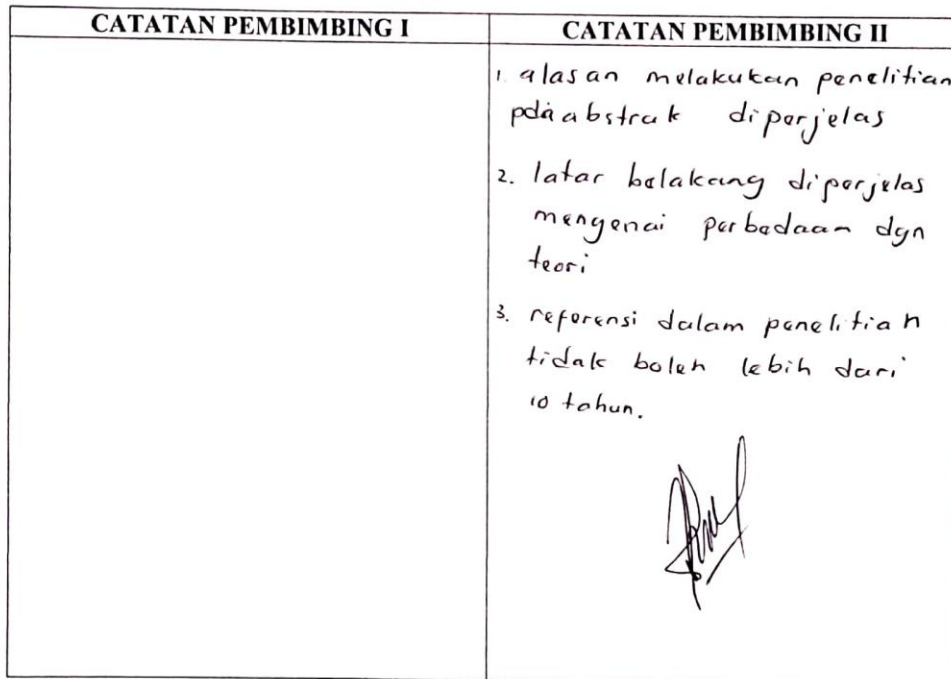 CATATAN PEMBIMBING I
CATATAN PEMBIMBING II
1. alasan melakukan penelitian
pda abstrak diperjelas
2. latar belakang diperjelas
mengenai perbedaan dgn
teori
3. referensi dalam penelitian
tidak boleh lebih dari
10 tahun.